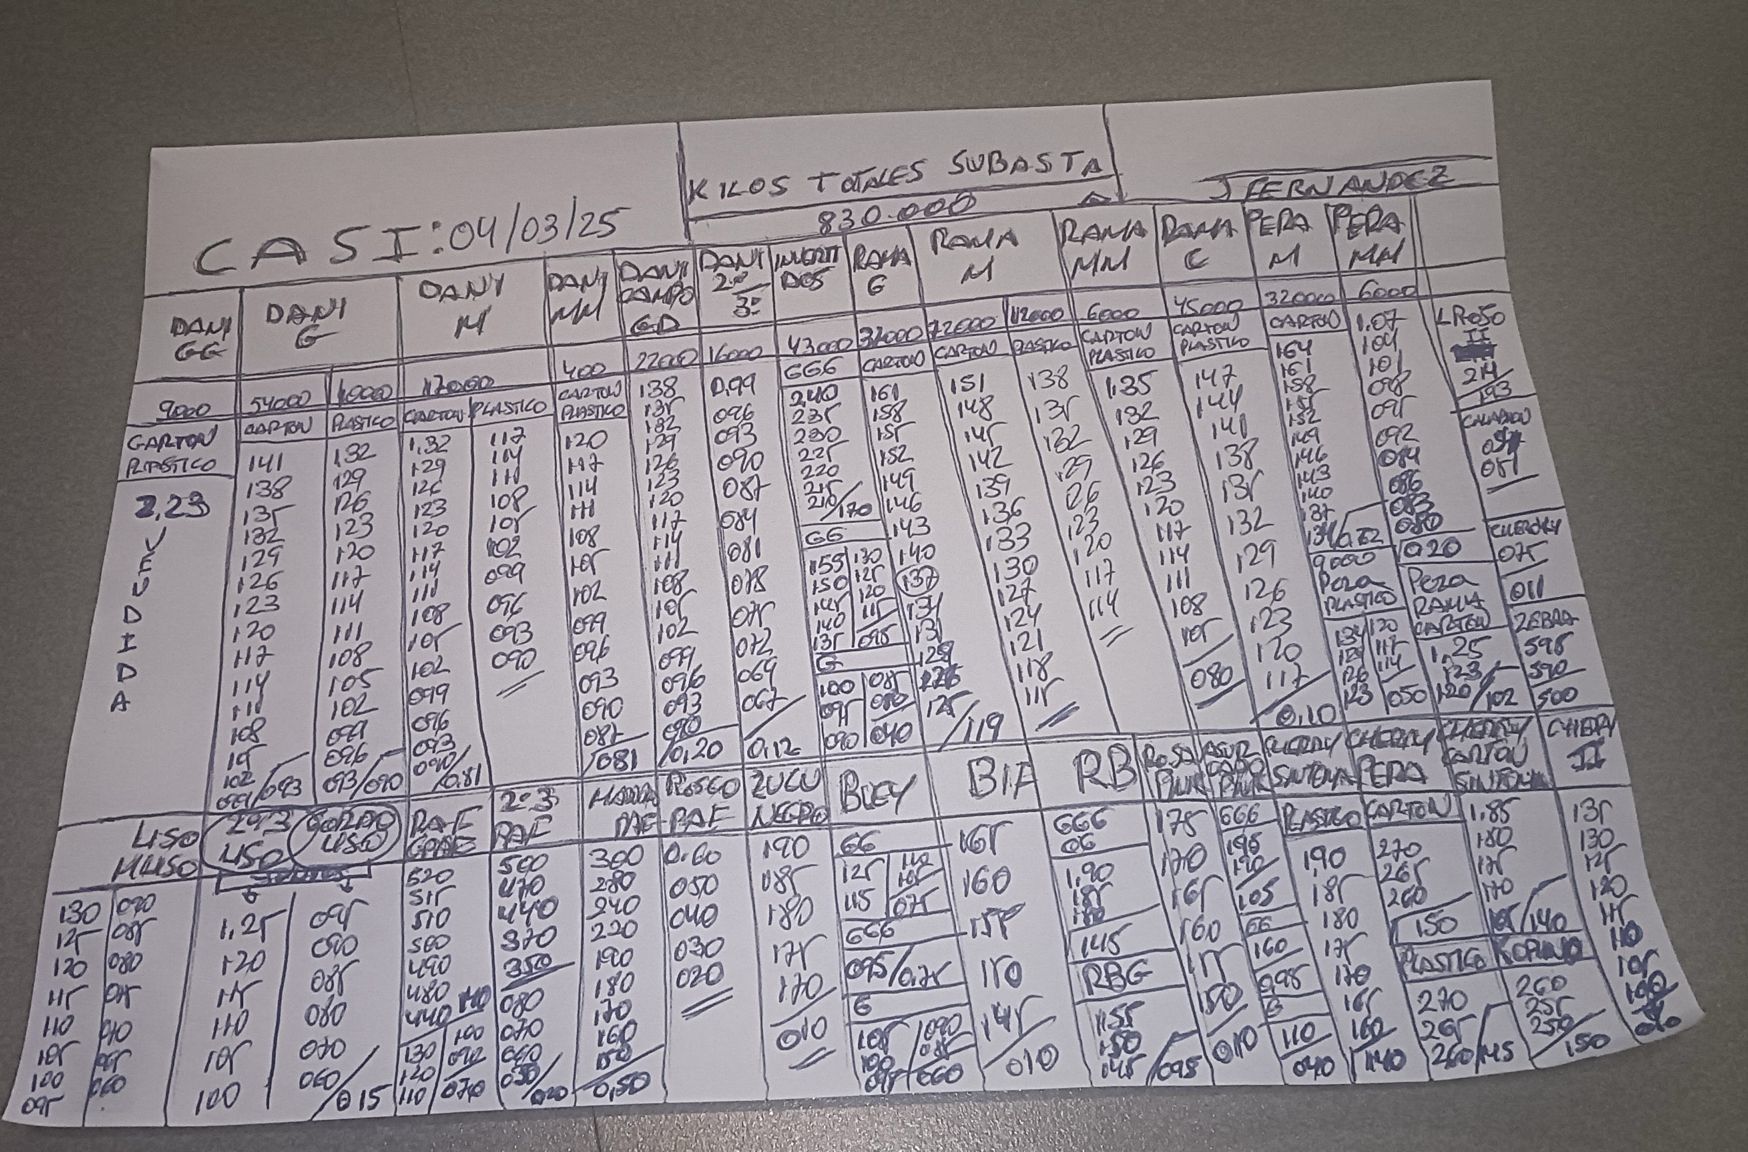 KILOS TOTALES SUBASTA
830.000
J FERNANDEZ
CASI:04/03/25
DANI GG
DANI G
DANI M
DANI MM
DANI CAMPO GD
DANI 2º/3º
INVERTI DOS
RAMA G
RAMA M
RAMA MM
RAMA C
PERA M
PERA MM
9000 54000 400 22000 16000 43000 32000 72000 6000 45000 32000 6000
CARTON PLASTICO
2,23
VENDIDA
CARTON
141
138
135
132
129
126
123
120
117
114
111
108
105
102
099/093
PLASTICO
132
129
126
123
120
117
114
111
108
105
102
099
096
093/090
CARTON
1,32
129
126
123
120
117
114
111
108
105
102
099
096
093
090/0,81
PLASTICO
117
114
111
108
105
102
099
096
093
090
CARTON PLASTICO
120
117
114
111
108
105
102
099
096
093
090
087
081
138
135
132
129
126
123
120
117
114
111
108
105
102
099
096
093
090
0,20
0,99
096
093
090
087
084
081
078
075
072
069
067
0,12
666
240
235
230
225
220
215
210/170
66
155 130
150 125
145 120
140 115
135 095
G
100 085
095 080
090 040
CARTON
161
158
155
152
149
146
143
140
137
134
131
128
125
/119
CARTON
151
148
145
142
139
136
133
130
127
124
121
118
115
PLASTICO
138
135
132
129
126
123
120
117
114
CARTON
PLASTICO
1,35
132
129
126
123
120
117
114
111
108
105
080
CARTON
PLASTICO
147
144
141
138
135
132
129
126
123
120
117
0,10
CARTON
164
161
158
155
152
149
146
143
140
137
9000
PERA
PLASTICO
134 120
117
114
123 050
1,07
104
101
098
095
092
086
083
080
1020
PERA
RAMA
CARTON
1,25
123
120/102
214
193
CHERRY
075
011
ZEBRA
595
590
500
LISO
MLISO
130 090
125 085
120 080
115 075
110 070
105 065
100 060
095
2º/3
LISO
1,25
120
115
110
105
100
GORDO
LISO
095
090
085
080
070
060
/015
RAF
520
515
510
500
490
480
440 140
130 100
120 090
110 070
2º3
RAF
500
470
440
370
350
080
070
060
050
RAF
300
280
240
220
190
180
170
160
150
0,50
ROSCO
RAF
0,60
050
040
030
020
ZULU
NEGRO
190
185
180
175
170
010
BUEY
66
125 110
115 075
666
095/0,75
G
105 090
100 085
095 060
BIF
165
160
155
150
145
010
RB
666
1,90
185
180
145
RBG
155
150
145
/095
ROSA
PINK
175
170
165
160
155
150
010
PINK
666
195
190
105
66
160
095
G
110
040
CHERRY
SINTOMA
PLASTICO
190
185
180
175
170
165
160
140
CHERRY
PERA
CARTON
270
265
260
150
PLASTICO
270
265
260/145
CHERRY
CARTON
SINTOMA
1,85
180
175
170
165/140
KOPINO
260
255
250
150
CHERRY
II
135
130
125
120
115
110
105
100